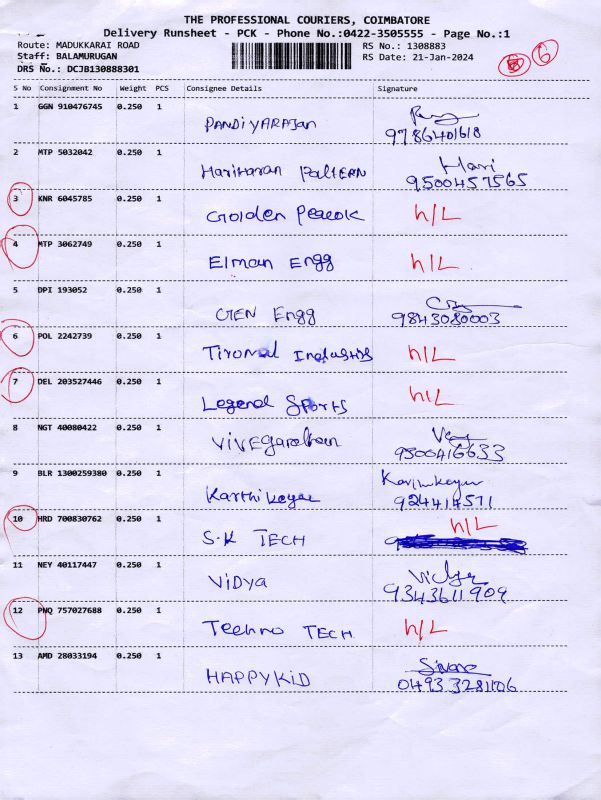 THE PROFESSIONAL COURIERS, COIMBATORE
Delivery Runsheet - PCK - Phone No.:0422-3505555 - Page No.:1
Route: MADUKKARAI ROAD RS No.: 1308883
Staff: BALAMURUGAN RS Date: 21-Jan-2024 6
DRS No.: DCJB130888301
S No Consignment No Weight PCS Consignee Details Signature
1 GGN 910476745 0.250 1 PANDIYARAJAN
9786401618
2 MTP 5032042 0.250 1 Hariharan PalTERN Hari
9500457565
3 KNR 6045785 0.250 1 Golden Peacok n/L
4 MTP 3062749 0.250 1 Elman Engg n/L
5 DPI 193052 0.250 1 GEN Engg
9843080003
6 POL 2242739 0.250 1 Tiromal Industris n/L
7 DEL 203527446 0.250 1 Legend Sports n/L
8 NGT 40080422 0.250 1 Vivegarathan
9500416633
9 BLR 1300259380 0.250 1 Karthikeyan Karthikeyan
924414571
10 HRD 700830762 0.250 1 S.K TECH n/L
11 NEY 40117447 0.250 1 Vidya Vidya
9343611909
12 PNQ 757027688 0.250 1 Techno TECH n/L
13 AMD 28033194 0.250 1 HAPPYKID
0493 3281106